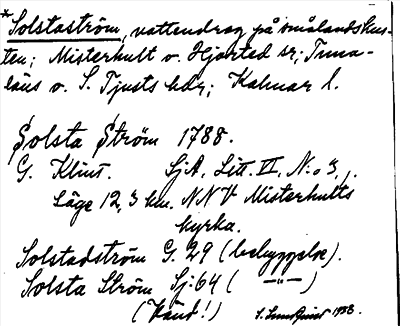 *Solstaström, vattendrag på Smålandskus-
ten; Misterhult o. Hjorted sr; Tuna-
läns o. S. Tjusts hdr; Kalmar l.
Solsta Ström 1788.
G. Klint. SjA, Litt. VI, N:o 3,
Läge 12,3 km. NNV Misterhults
kyrka.
Solstadström G. 29 (bebyggelse).
Solsta Ström Sj: 64 ( —"— )
(Känd!) S. Lundquist 1933.